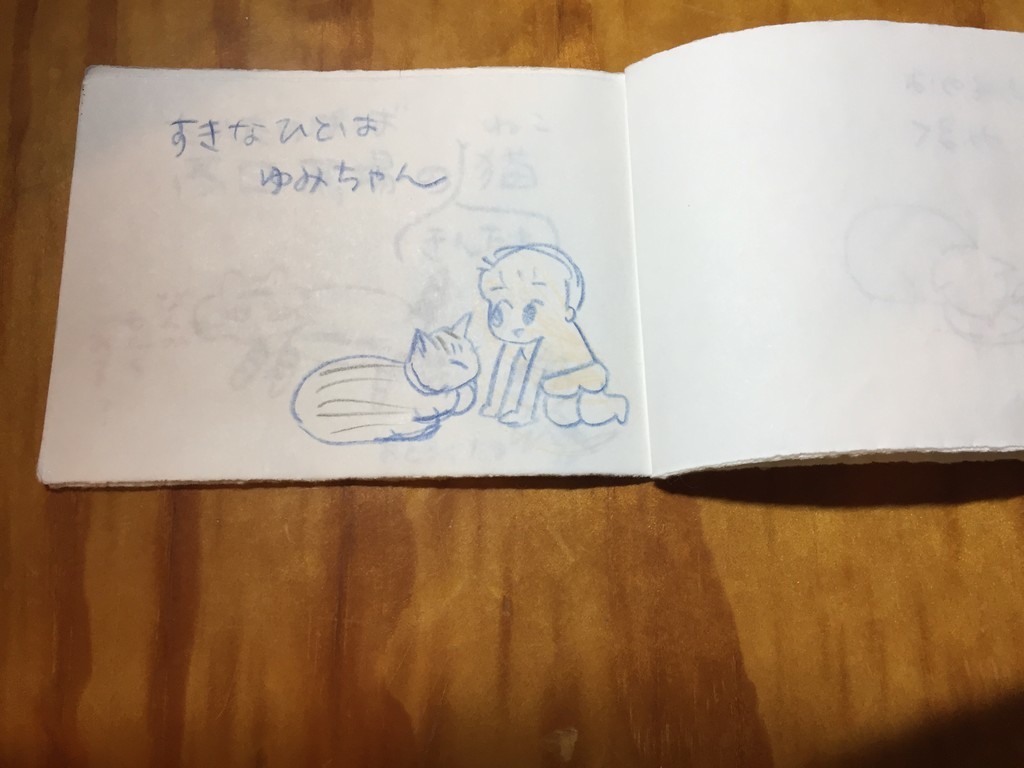 すきなひとは
ゆみちゃん